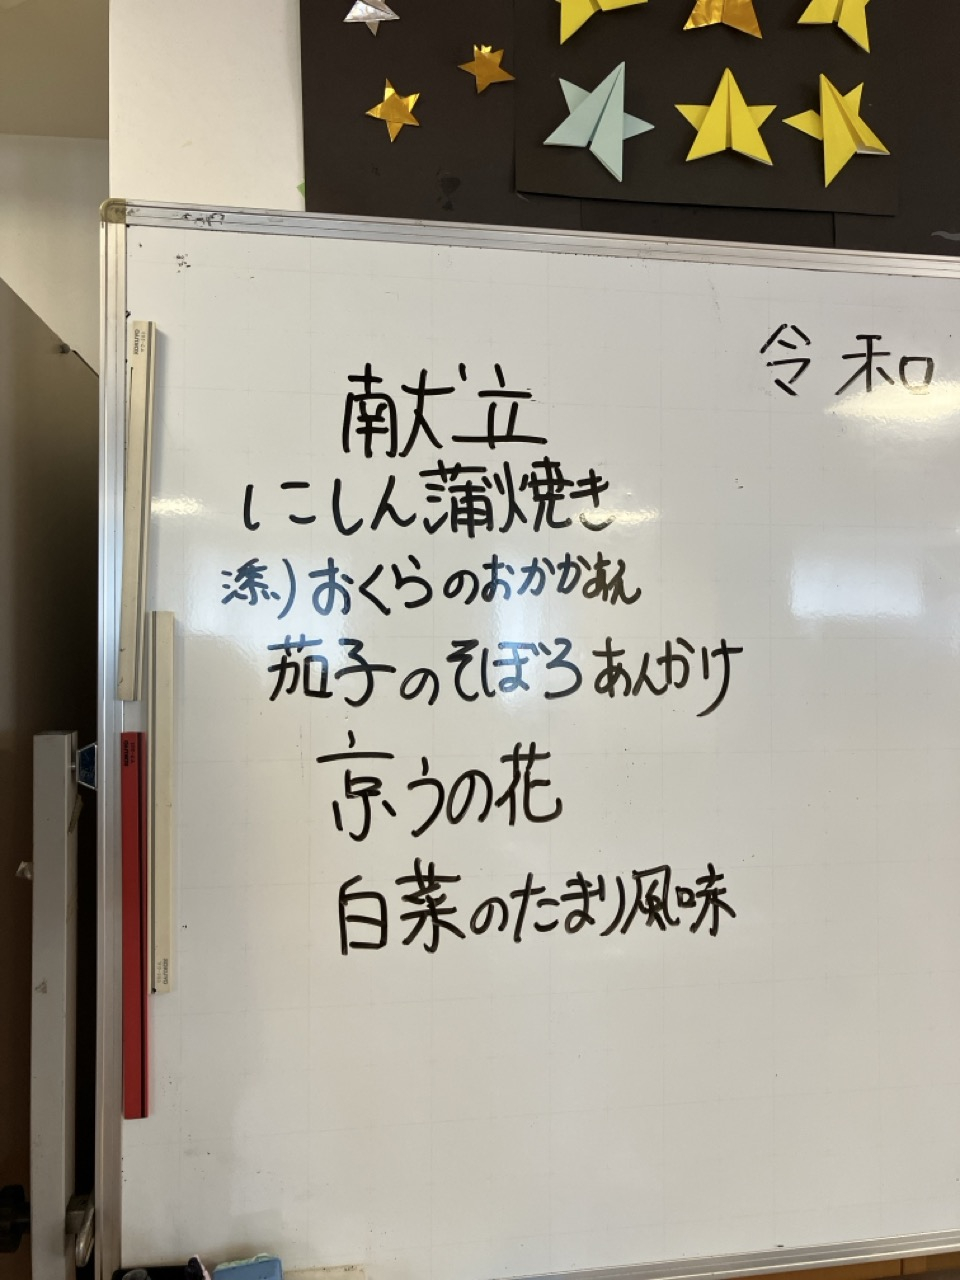 献立
にしん蒲焼き
添)おくらのおかかあん
茄子のそぼろあんかけ
京うの花
白菜のたまり風味
令和